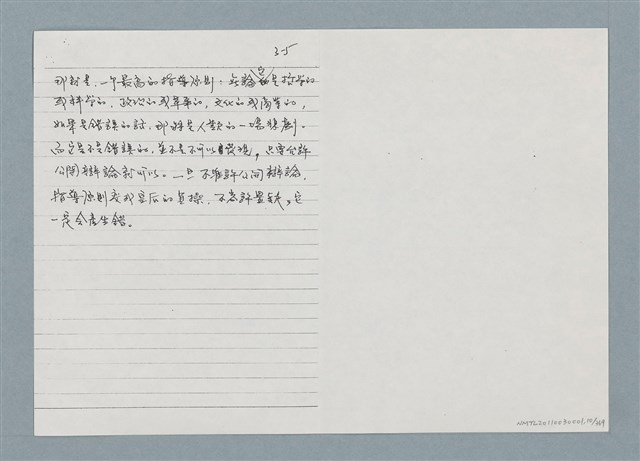 35
那就是,一个最高的指導原则:無論它是哲学的
或科学的,政治的或革命的,文化的或商業的,
如果是錯誤的話,那將是人類的一場悲劇。
而它是不是錯誤的,並不是不可以發現,只要允許
公開辯論就可以。一旦不准許公開辯論,
指導原则变成皇后的貞操,不容許置疑,它
一定会產生錯。
NMTL20110090001.10/